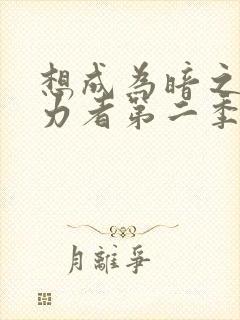 想成为暗之
力者第二季
月離爭